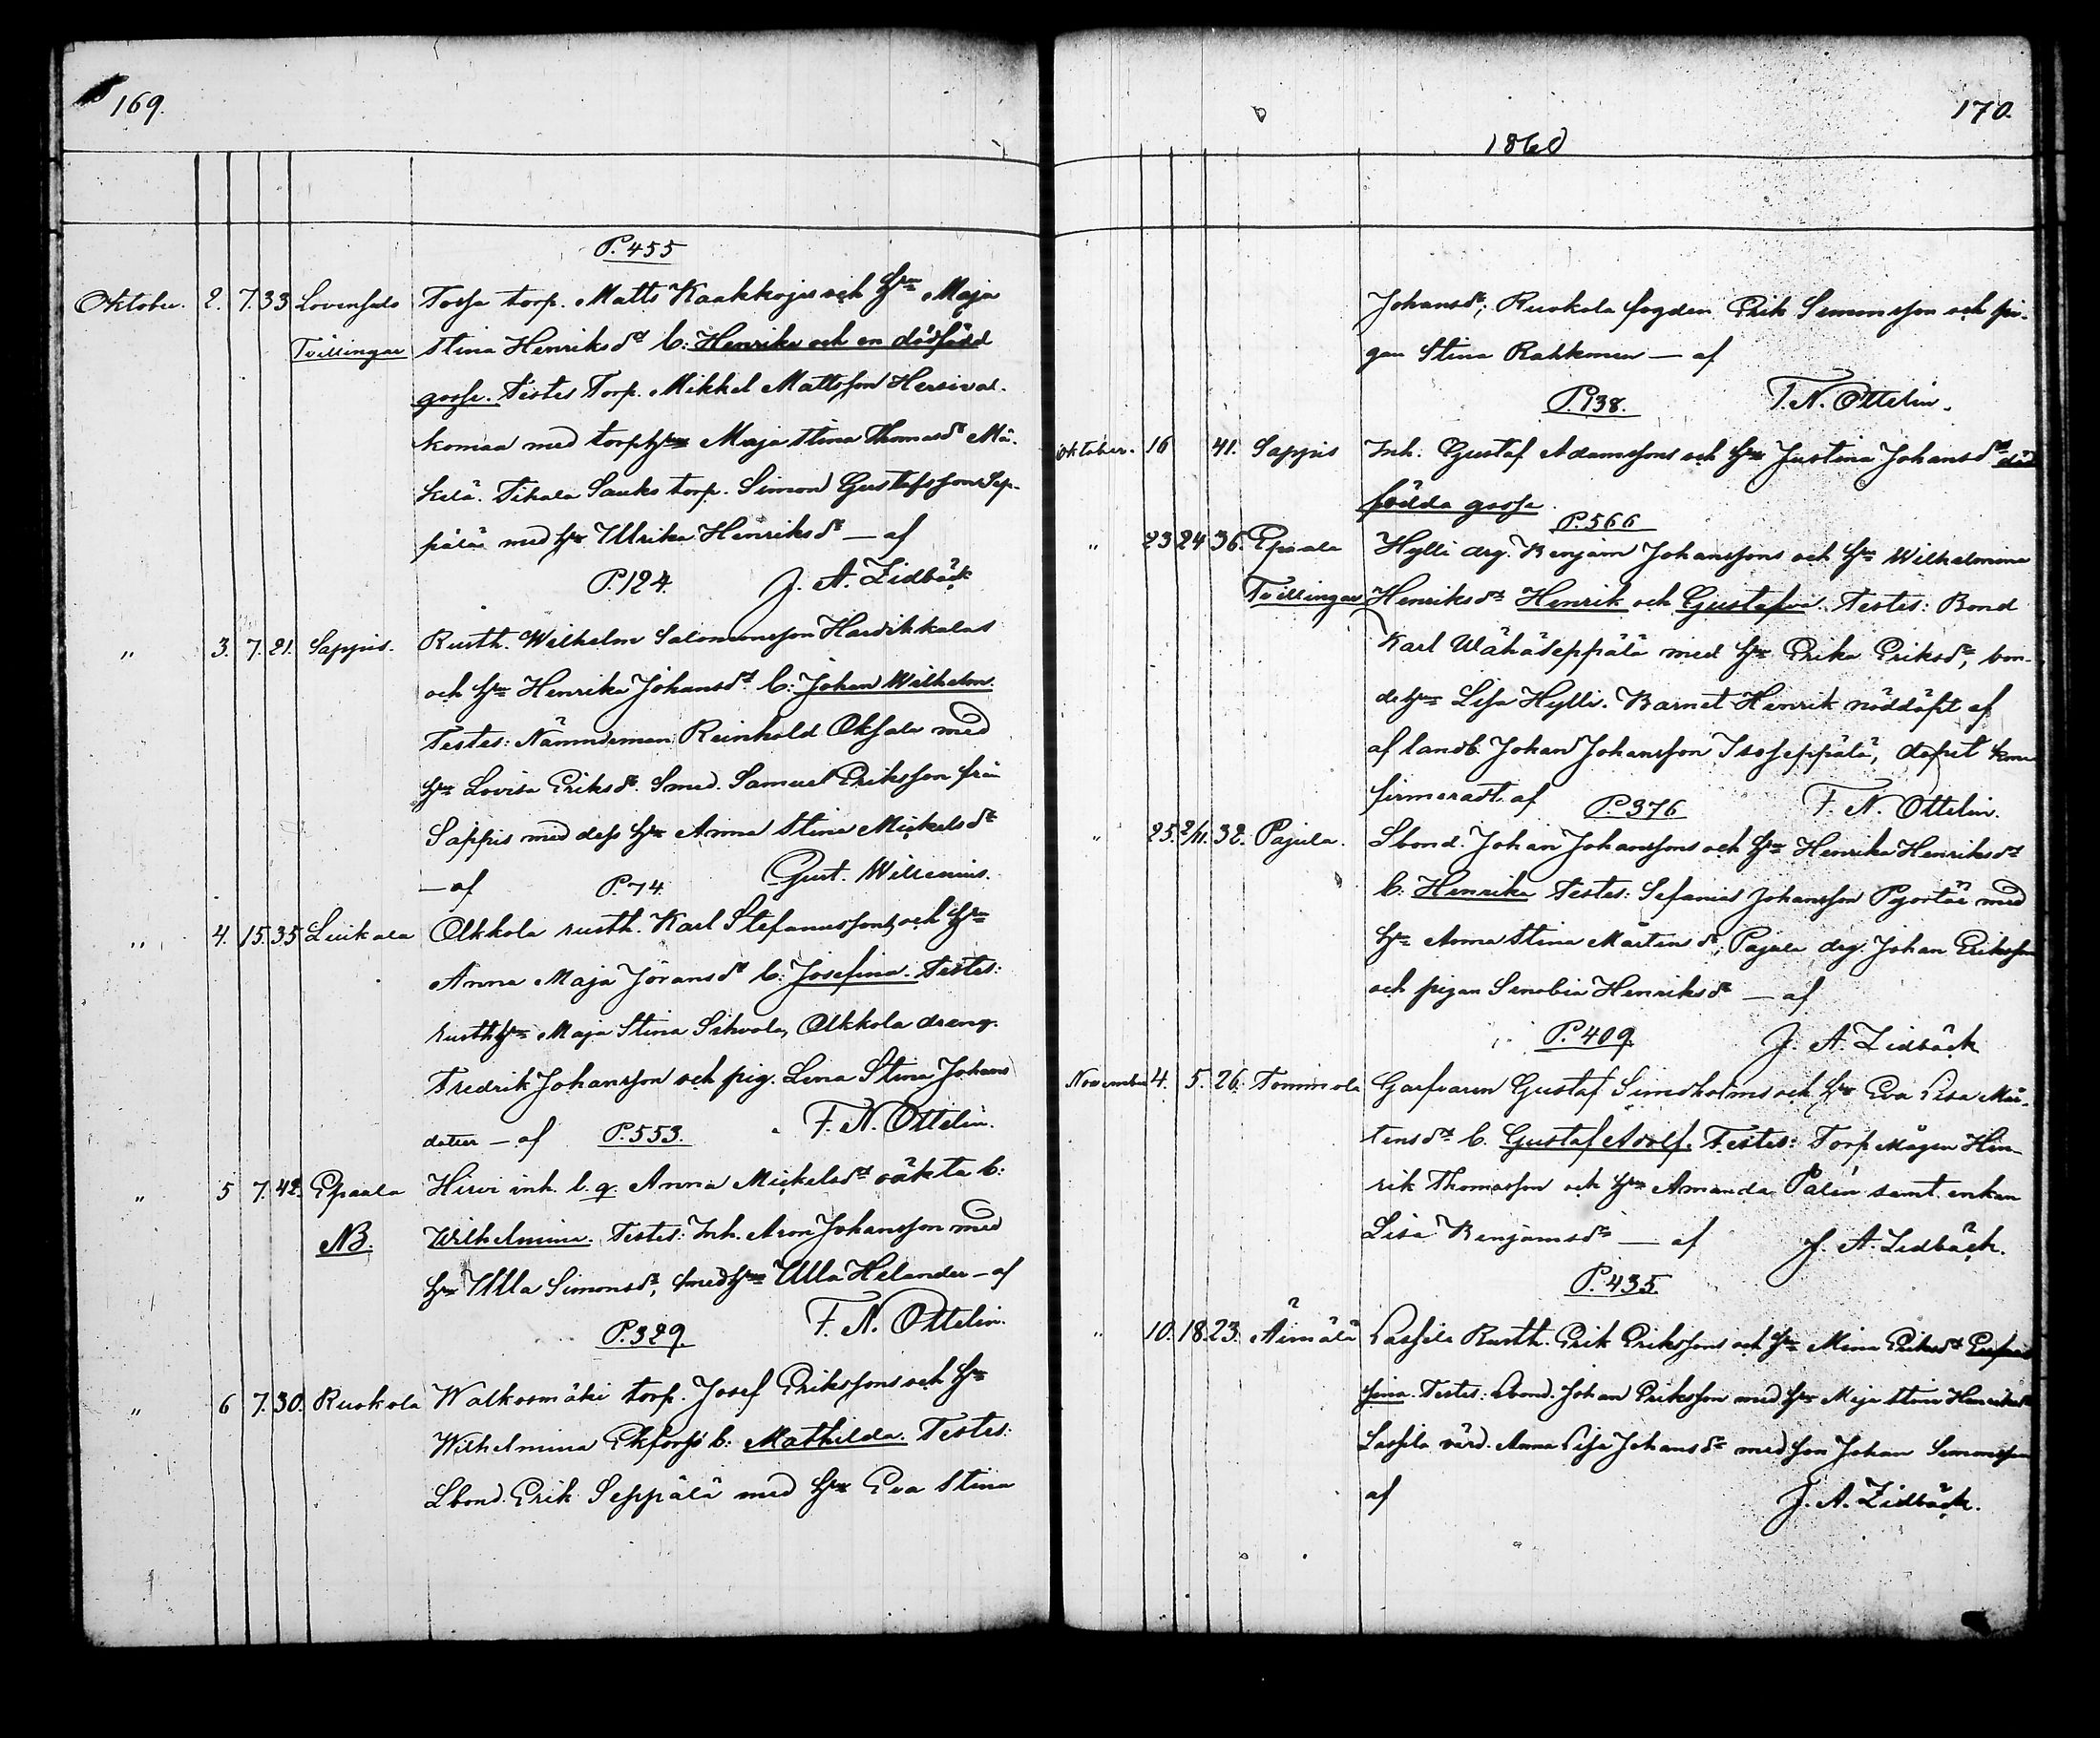 169.
P. 455
Oktober. 2. 7. 33 Lovensało Torsa torp. Matts Kaakkojus och hu Maja
Tvillingar Stina Henriksdr b: Henrika och en dödfödd
gosse. Testes Torp. Mikkel Mattsson Hersivat-
komaa med torphu Maja Stina Thomasdr Mä-
kelä. Tikala Sauks torp. Simon Gustafsson Sep-
pälä med hu Ullrika Henriksdr — af
P. 124. J. A. Zidbäck
" 3. 7. 21. Sappis. Rusth. Wilhelm Salomonsson Hardikkalas
och hu Henrika Johansdr b: Johan Wilhelm.
Testes: Nämndeman Reinhold Oksala med
hu Lovisa Eriksdr. Smed. Samuel Eriksson från
Sappis med dess hu Anna Stina Mickelsdr
— af P. 74. Gust. Wilsenius.
" 4. 15. 35 Luikala Olkkola rusth. Karl Stefanussons och hu
Anna Maja Jöransdr b: Josefina. Testes:
rusthhu Maja Stina Sihvola, Olkkola dreng.
Fredrik Johansson och pig. Lena Stina Johans
dotter — af P. 553. F. N. Ottelin.
" 5 7. 42. Epaala Hirvi inh. l. q. Anna Mickelsdr oäkta b:
NB. Wilhelmina. Testes: Inh. Aron Johansson med
hu Ulla Simonsdr, smedhu Ulla Helander — af
P. 329. F. N. Ottelin.
" 6 7. 30. Ruokola Walkosmäki torp. Josef Erikssons och hu
Wilhelmina Ekfors' b: Mathilda. Testes:
Lbond. Erik Seppälä med hu Eva Stina
170.
1860
Johansdr, Ruokola fogden Erik Simonsson och pi-
gan Stina Rahkonen — af
P. 138. F. N. Ottelin.
Oktober. 16 41. Sappis Inh. Gustaf Adamssons och hu Justina Johansdr död
födda gosse.
P. 566
" 23 24 36. Epaala Hylli drg. Benjam Johanssons och hu Wilhelmina
Tvillingar Henriksdr Henrik och Gustafva. Testes: Bond
Karl Wähäseppälä med hu Erika Eriksdr, bon-
dehu Lisa Hylli. Barnet Henrik nöddöpt af
af landb. Johan Johansson Isoseppälä, dopet kon
firmeradt af P. 376 F. N. Ottelin.
" 25. 2/11. 32. Pajula. Lbond. Johan Johanssons och hu Henrika Henriksdr
b: Henrika Testes: Sefanias Johansson Pyortän med
hu Anna Stina Mårtensdr, Pajula drg. Johan Eriksson
och pigan Senobia Henriksdr — af
P. 409. J. A. Zidbäck
November 4. 5. 26. Tommola Garfvaren Gustaf Simdholms och hu Eva Lisa Mår-
tensdr b. Gustaf Adolf. Testes: Torp. mågen Hen-
rik Thomasson och hu Amanda Palin samt enkan
Lisa Benjamsdr — af J. A. Zidbäck.
P. 435.
" 10. 18. 23. Äimälä Lassila Rusth. Erik Erikssons och hu Mina Eriksdr
fina. Testes: Lbond. Johan Eriksson med hu Maja Stina Henriksdr
Lassila värd. Anna Lisa Johansdr med son Johan Simonsson
af J. A. Zidbäck.